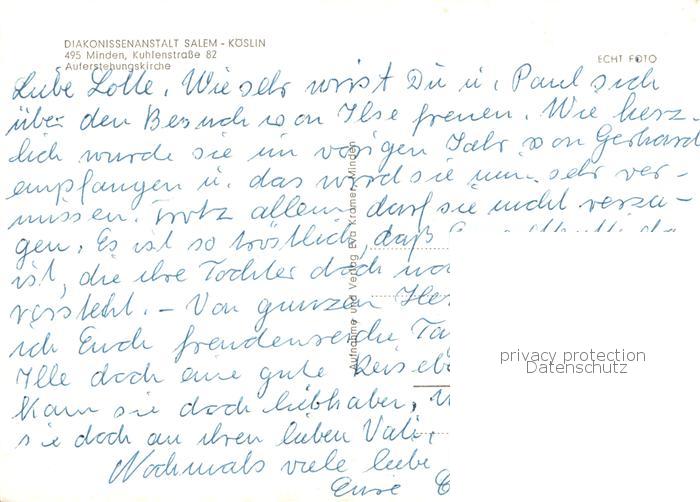 DIAKONISSENANSTALT SALEM - KÖSLIN
495 Minden, Kuhlenstraße 82
Auferstehungskirche
ECHT FOTO
Liebe Lotte, Wie sehr wirst Du u. Paul sich
über den Besuch von Ilse freuen. Wie herz-
lich wurde sie im vorigen Jahr von Gerhard
empfangen u. das wird sie nun sehr ver-
missen. Trotz allem darf sie nicht verza-
gen. Es ist so tröstlich, daß
ist, die ihre Tochter doch
versteht. - Von ganzen
ich Euch freudenreiche
Ilse doch eine gute
Kann sie doch liebhaben,
sie doch an ihren lieben Vati,
Nochmals viele liebe
Eure
Aufnahme und Verlag Eva Kramer, Minden
privacy protection
Datenschutz